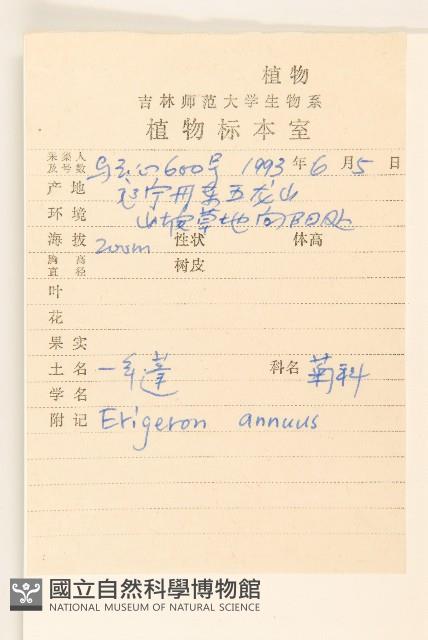 植物
吉林师范大学生物系
植物标本室
采集人及号数 600号 1993年6月5日
产地 辽宁丹东五龙山
环境 山坡草地向阳处
海拔 200m 性状 体高
胸高直径 树皮
叶
花
果实
土名 一年蓬 科名 菊科
学名
附记 Erigeron annuus
國立自然科學博物館
NATIONAL MUSEUM OF NATURAL SCIENCE